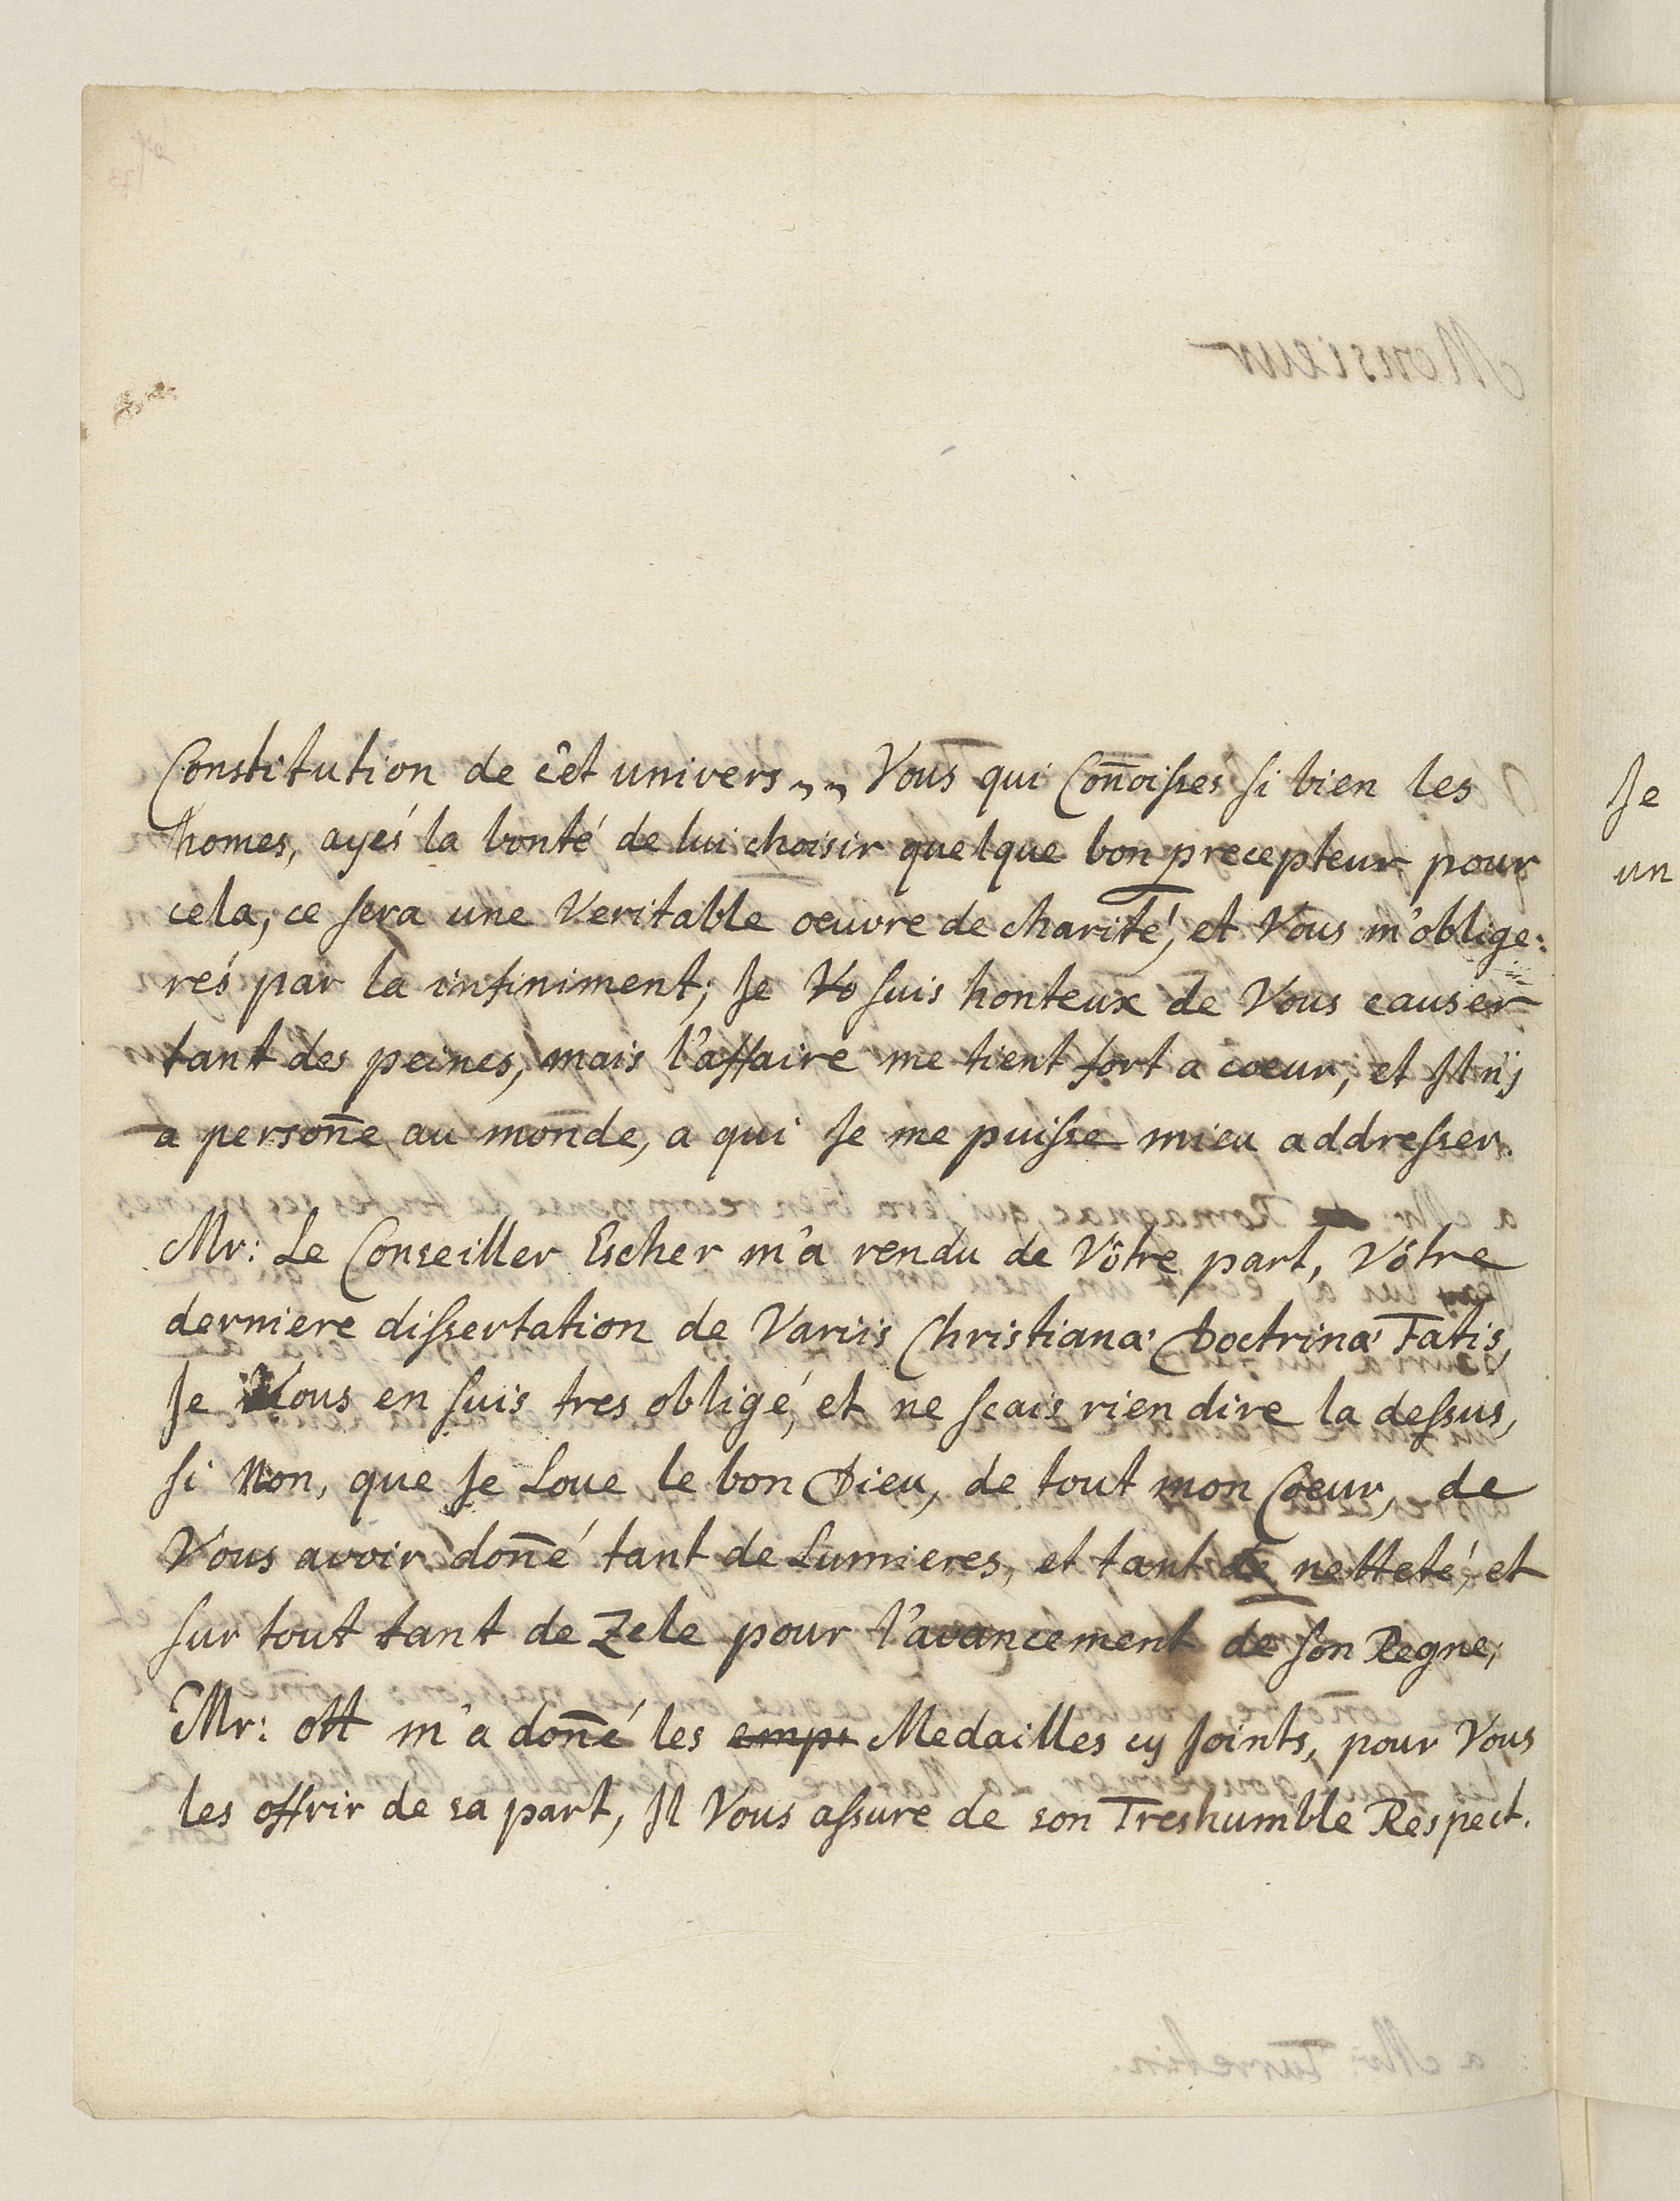 Constitution de cêt univers„„ Vous qui Con̄oisses si bien les
homes, ayés la bonté de lui choisir quelque bon precepteur pour
cela, ce sera une Veritable oeuvre de charité, et Vous m'oblige:
rés par la infiniment; Je Vo suis honteux de Vous causer
tant des peines, mais l'affaire me tient fort a coeur, et Il n'j
a person̄e au monde, a qui Je me puisse mieu addresser.
Mr: Le Conseiller Escher m'a rendu de Vôtre part, Vôtre
derniere dissertation de Variis Christianæ Doctrinæ Fatis,
Je Vous en suis tres obligé, et ne scais rien dire la dessus,
si Non, que Je Loue le bon Dieu, de tout mon Coeur, de
Vous avoir don̄é tant de Lumieres, et tant de netteté, et
sur tout tant de Zele pour l'avancement de son Regne,
Mr: ott m'a don̄é les emps Medailles cy Joints, pour Vous
les offrir de sa part, Il Vous assure de son Treshumble Respect.
Je
un